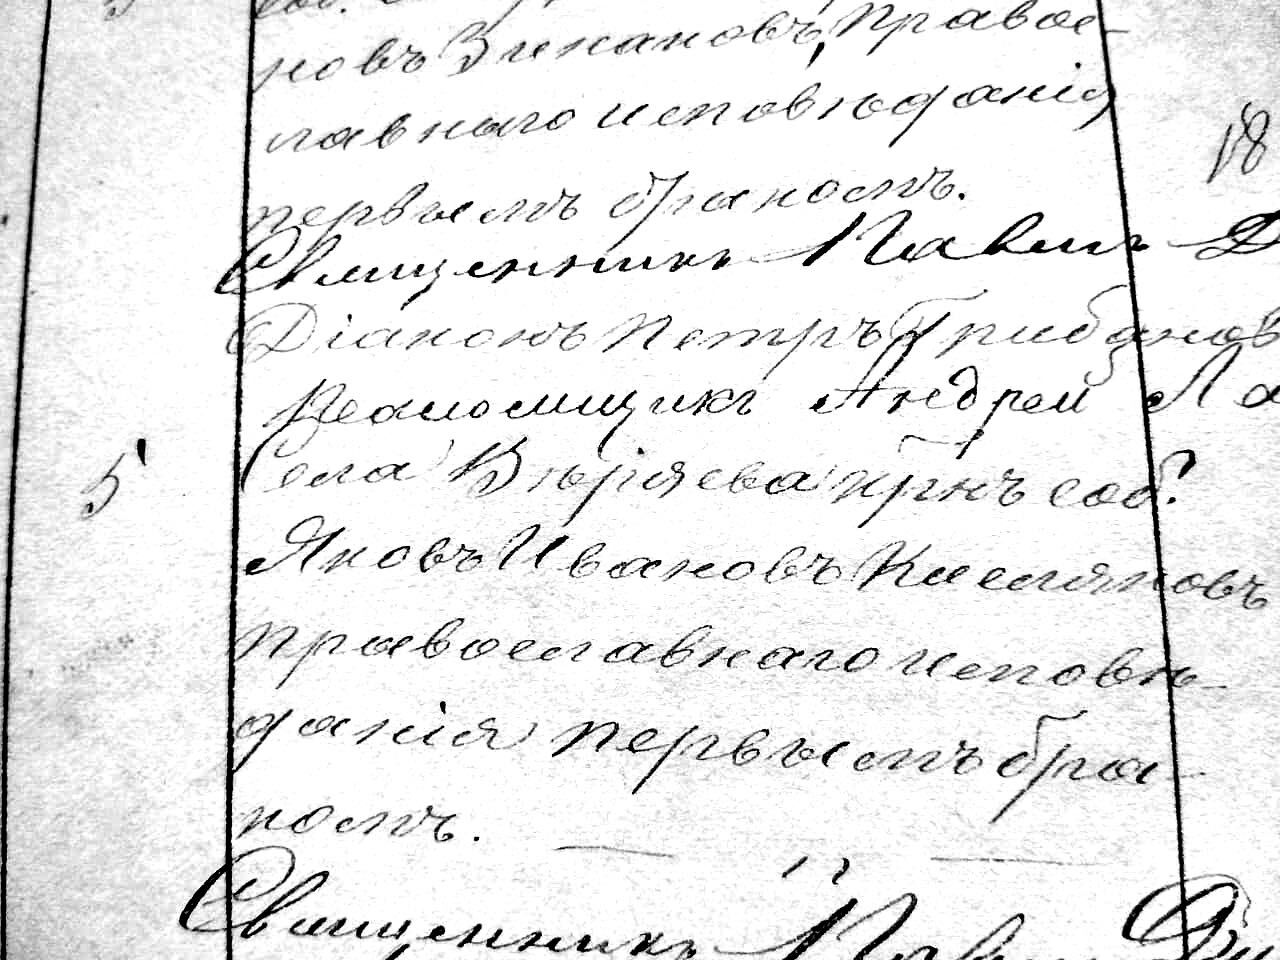 новъ Зинановъ, правос-
лавнаго исповѣданія
18
первымъ бракомъ.
Священникъ Павелъ
Діаконъ Петръ Грибанов
Псаломщикъ Андрей
5 Села Вѣряева крнъ соб.
Яковъ Ивановъ Касмяновъ
православнаго исповѣ-
данія первымъ бра-
комъ.
Священникъ Павелъ